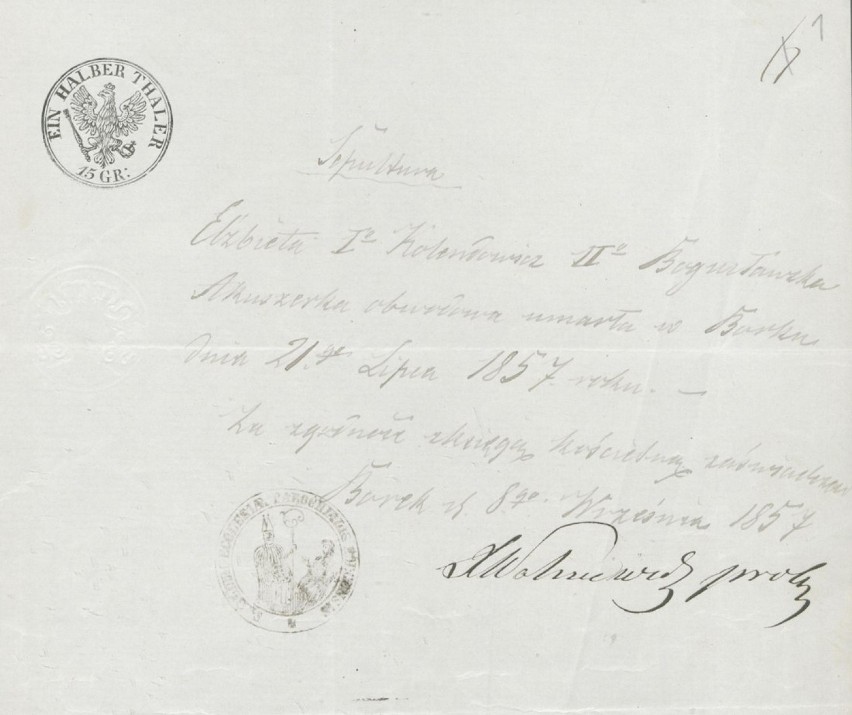 1
EIN HALBER THALER
15 GR:
Sepultura
Elżbieta I° Kolendowicz II° Bogusławska
Akuszerka obwodowa umarła w Borku
dnia 21.go Lipca 1857. roku. —
Za zgodność z księgą kościelną zaświadczam
Borek d. 8go Września 1857
XWolniewicz prob
ECCLESIAE PAROCHIALIS